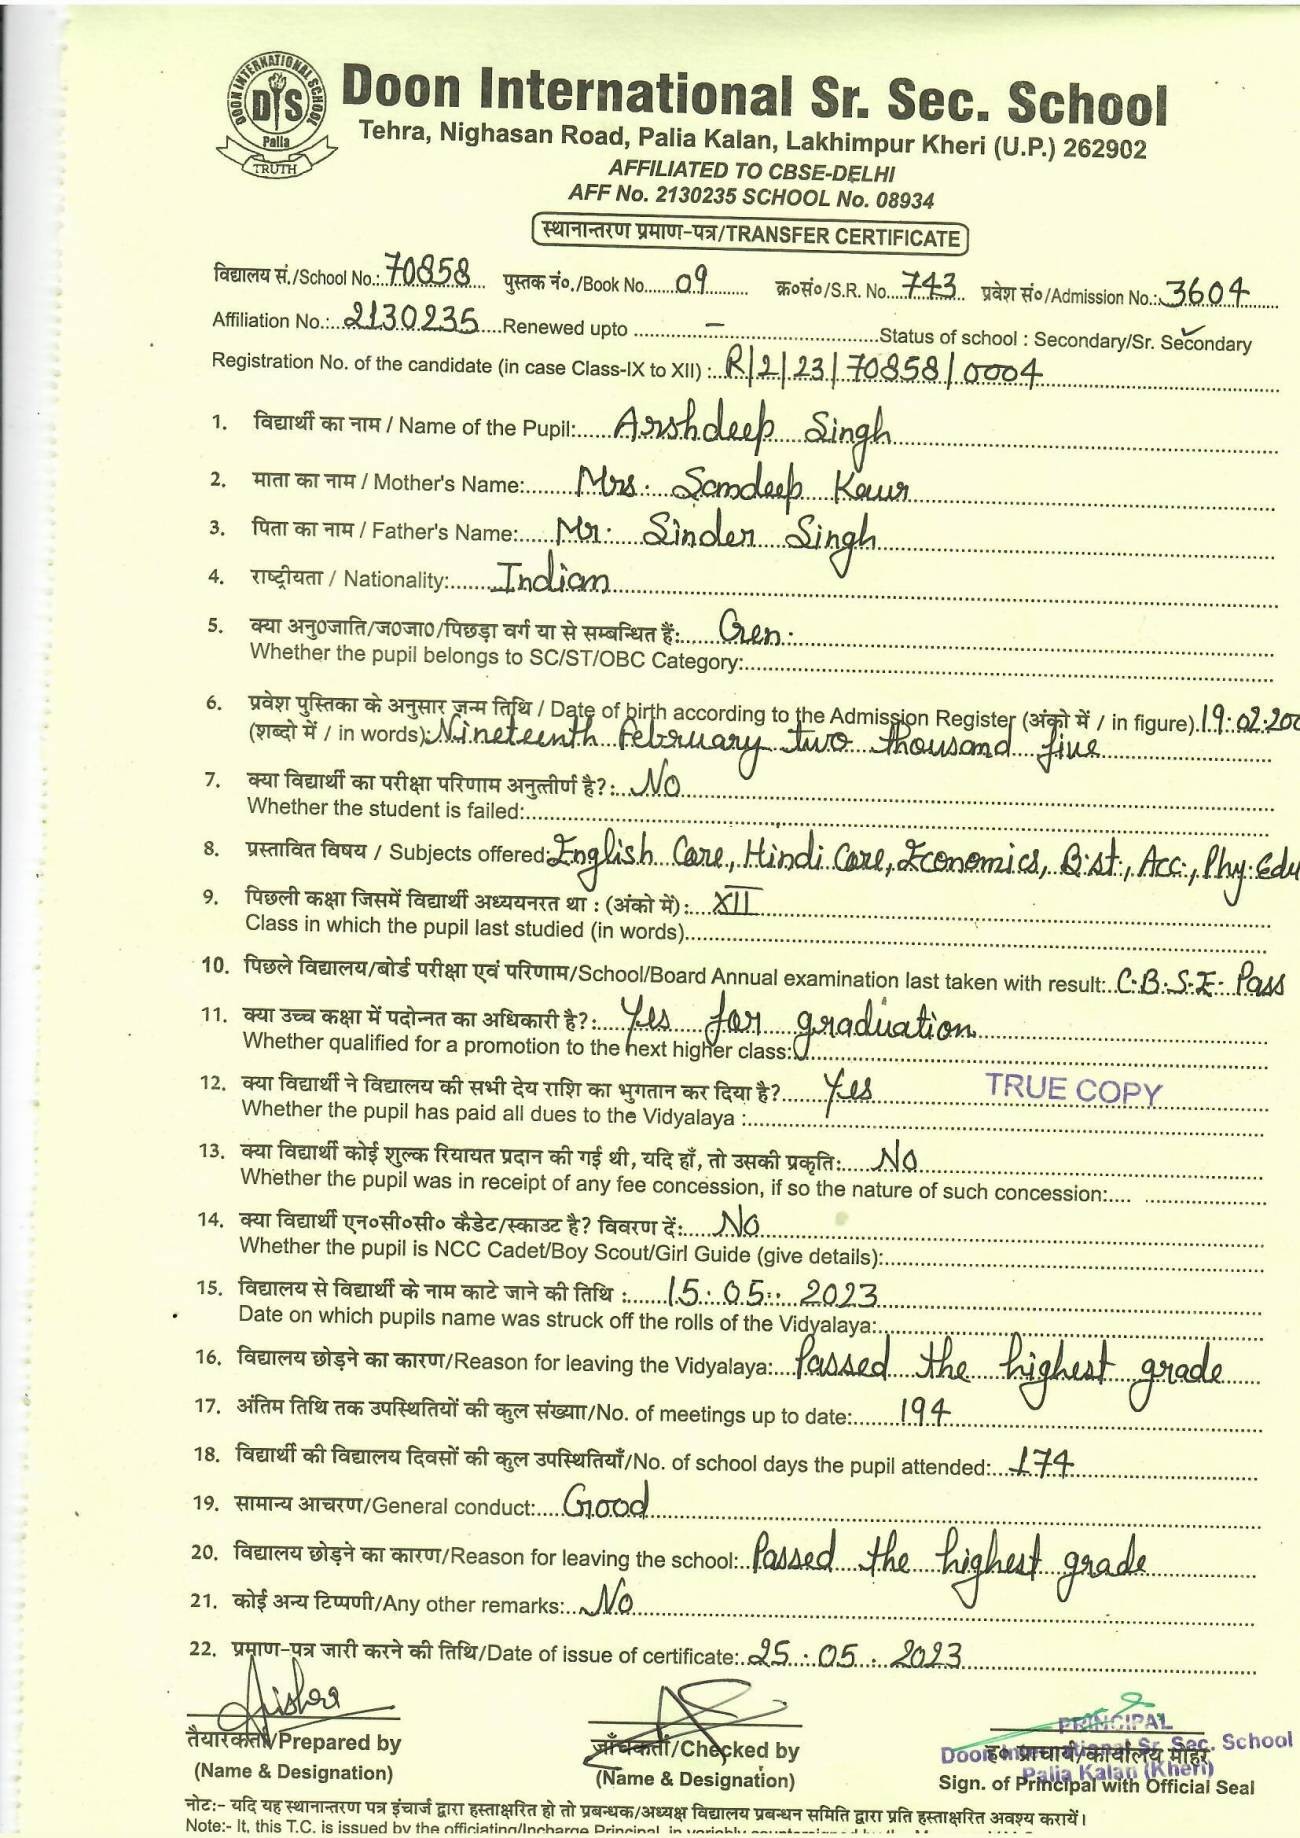 DOON INTERNATIONAL SCHOOL
DIS
Palia
TRUTH
Doon International Sr. Sec. School
Tehra, Nighasan Road, Palia Kalan, Lakhimpur Kheri (U.P.) 262902
AFFILIATED TO CBSE-DELHI
AFF No. 2130235 SCHOOL No. 08934
स्थानान्तरण प्रमाण-पत्र/TRANSFER CERTIFICATE
विद्यालय सं./School No.: 70858 पुस्तक नं०./Book No. 09 क्र०सं०/S.R. No. 743 प्रवेश सं०/Admission No.: 3604
Affiliation No.: 2130235 Renewed upto - Status of school : Secondary/Sr. Secondary
Registration No. of the candidate (in case Class-IX to XII) : R/2/23/70858/0004
1. विद्यार्थी का नाम / Name of the Pupil: Arshdeep Singh
2. माता का नाम / Mother's Name: Mrs. Samdeep Kaur
3. पिता का नाम / Father's Name: Mr. Sinder Singh
4. राष्ट्रीयता / Nationality: Indian
5. क्या अनु०जाति/ज०जा०/पिछड़ा वर्ग या से सम्बन्धित हैं: Gen.
Whether the pupil belongs to SC/ST/OBC Category:
6. प्रवेश पुस्तिका के अनुसार जन्म तिथि / Date of birth according to the Admission Register (अंको में / in figure) 19.02.200
(शब्दो में / in words): Nineteenth February two thousand five
7. क्या विद्यार्थी का परीक्षा परिणाम अनुत्तीर्ण है?: No
Whether the student is failed:
8. प्रस्तावित विषय / Subjects offered: English Core, Hindi Core, Economics, B.st., Acc., Phy. Edu
9. पिछली कक्षा जिसमें विद्यार्थी अध्ययनरत था : (अंको में) : XII
Class in which the pupil last studied (in words)
10. पिछले विद्यालय/बोर्ड परीक्षा एवं परिणाम/School/Board Annual examination last taken with result: C.B.S.E. Pass
11. क्या उच्च कक्षा में पदोन्नत का अधिकारी है?: Yes for graduation
Whether qualified for a promotion to the next higher class:
12. क्या विद्यार्थी ने विद्यालय की सभी देय राशि का भुगतान कर दिया है? Yes TRUE COPY
Whether the pupil has paid all dues to the Vidyalaya :
13. क्या विद्यार्थी कोई शुल्क रियायत प्रदान की गई थी, यदि हाँ, तो उसकी प्रकृति: No
Whether the pupil was in receipt of any fee concession, if so the nature of such concession:
14. क्या विद्यार्थी एन०सी०सी० कैडेट/स्काउट है? विवरण दें: No
Whether the pupil is NCC Cadet/Boy Scout/Girl Guide (give details):
15. विद्यालय से विद्यार्थी के नाम काटे जाने की तिथि : 15.05.2023
Date on which pupils name was struck off the rolls of the Vidyalaya:
16. विद्यालय छोड़ने का कारण/Reason for leaving the Vidyalaya: Passed the highest grade
17. अंतिम तिथि तक उपस्थितियों की कुल संख्या/No. of meetings up to date: 194
18. विद्यार्थी की विद्यालय दिवसों की कुल उपस्थितियाँ/No. of school days the pupil attended: 174
19. सामान्य आचरण/General conduct: Good
20. विद्यालय छोड़ने का कारण/Reason for leaving the school: Passed the highest grade
21. कोई अन्य टिप्पणी/Any other remarks: No
22. प्रमाण-पत्र जारी करने की तिथि/Date of issue of certificate: 25.05.2023
PRINCIPAL
तैयारकर्ता/Prepared by जाँचकर्ता/Checked by ह० प्राचार्य/कार्यालय मोहर
Doon International Sr. Sec. School
Palia Kalan (Kheri)
(Name & Designation) (Name & Designation) Sign. of Principal with Official Seal
नोटः- यदि यह स्थानान्तरण पत्र इंचार्ज द्वारा हस्ताक्षरित हो तो प्रबन्धक/अध्यक्ष विद्यालय प्रबन्धन समिति द्वारा प्रति हस्ताक्षरित अवश्य करायें।
Note:- It, this T.C. is issued by the officiating/Incharge Principal, in variably countersigned by the